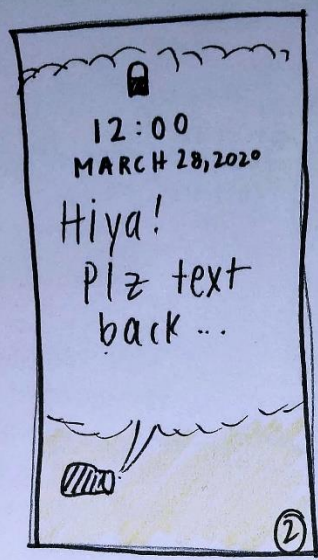 12:00
MARCH 28,2020
Hiya!
Plz text
back...
2